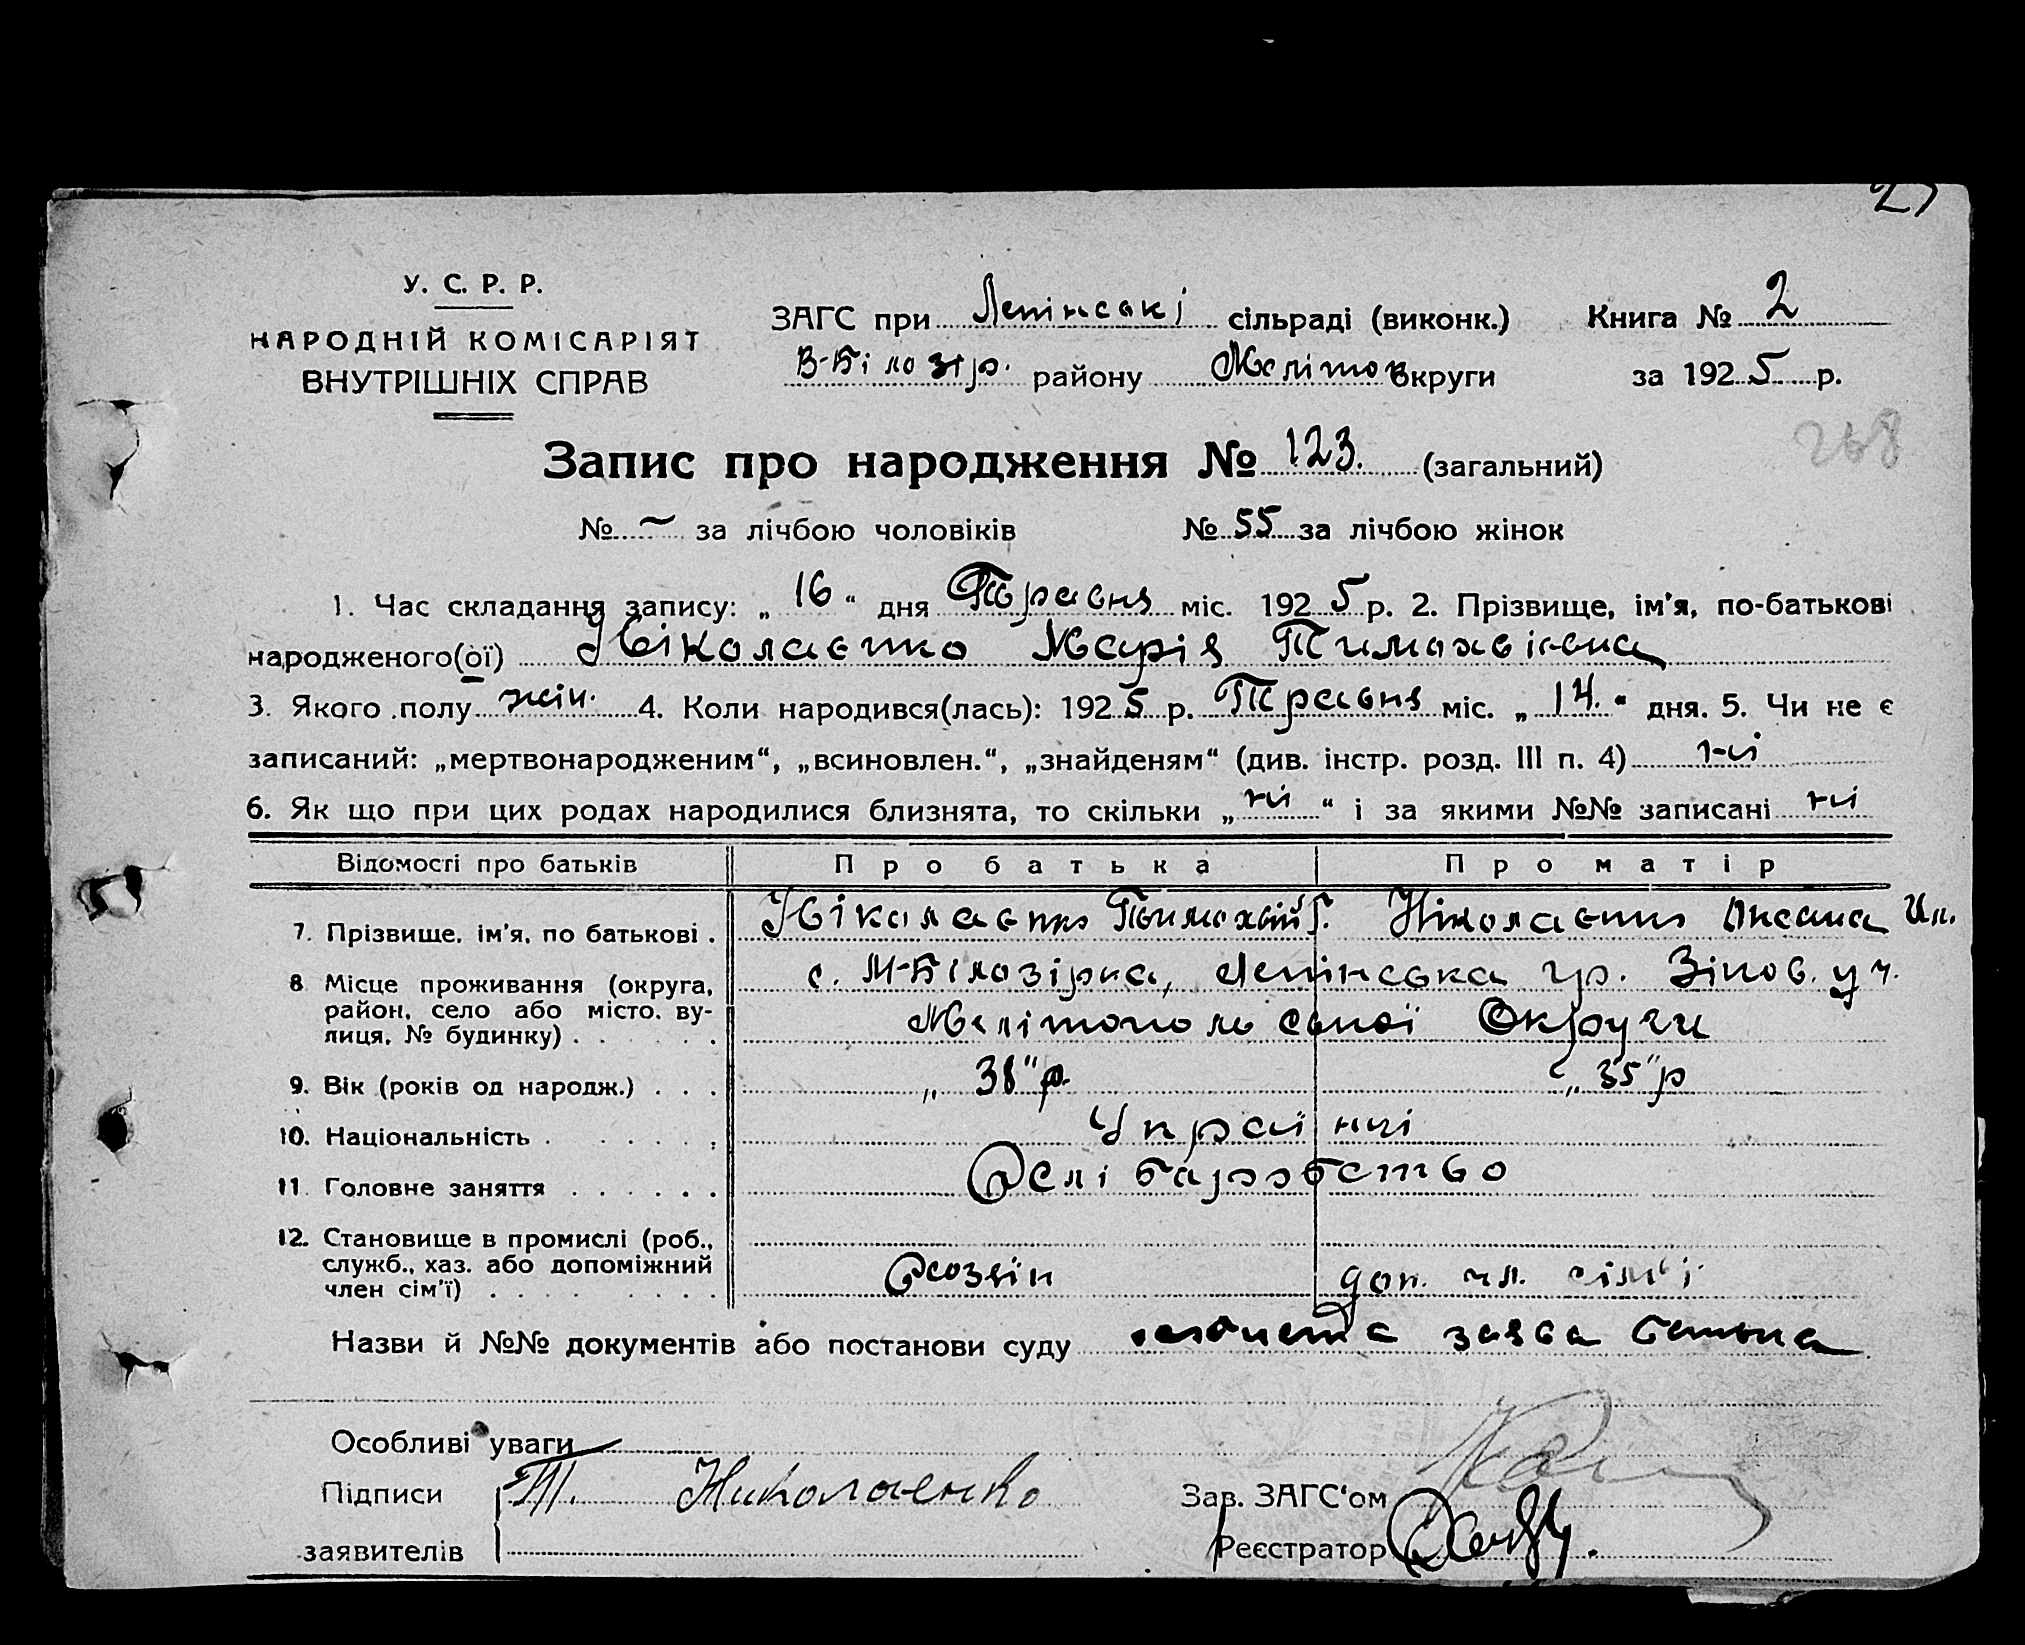 У. С. Р. Р.
НАРОДНІЙ КОМІСАРІЯТ
ВНУТРІШНІХ СПРАВ
ЗАГС при Ленінські сільраді (виконк.) Книга № 2
В-Білозір. району Мелітоп округи за 1925 р.
268
Запис про народження № 123. (загальний)
№ – за лічбою чоловіків № 55 за лічбою жінок
1. Час складання запису: „ 16 “ дня Травня міс. 1925 р. 2. Прізвище, ім'я, по-батькові
народженого(ої) Ніколаєнко Марія Тимохвієвна
3. Якого полу жін. 4. Коли народився(лась): 1925 р. Травня міс. „ 14. “ дня. 5. Чи не є
записаний: „мертвонародженим“, „всиновлен.“, „знайденям“ (див. інстр. розд. III п. 4) ні
6. Як що при цих родах народилися близнята, то скільки „ ні “ і за якими №№ записані ні
Відомості про батьків Про батька Про матір
7. Прізвище, ім'я, по батькові . Ніколаєнко Тимохвій Г. Ніколаєнко Оксана Ил.
8 Місце проживання (округа, район, село або місто, вулиця, № будинку) с. М-Білозірка, Ленінська гр. Зінов. уч.
Мелітопольської Округи
9. Вік (років од народж.) . . . „ 38 “ р. „ 35 “ р
10. Національність . Українці
11. Головне заняття . . . . . . Хліборобство
12. Становище в промислі (роб., служб., хаз. або допоміжний член сім'ї) Хозяїн доп. чл. сім'ї
Назви й №№ документів або постанови суду заява батька
Особливі уваги –
Підписи Т. Николаенко Зав. ЗАГС'ом
заявителів Реєстратор